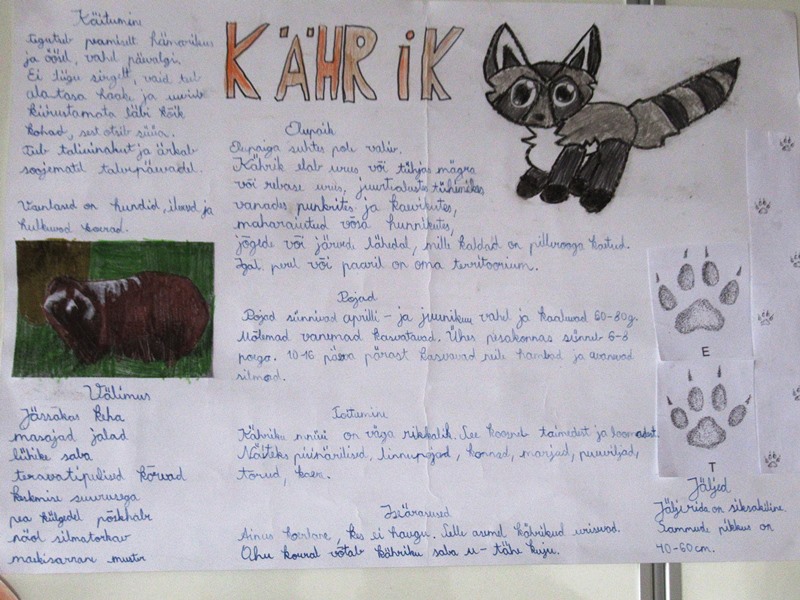 KÄHRIK
Käitumine
Tegutseb peamiselt hämarikus
ja öösel, vahel päevalgi.
Ei liigu sirgelt, vaid teeb
alatasa haake ja uurib
kiirustamata läbi kõik
kohad, sest otsib süüa.
Teeb taliuinakut ja ärkab
soojematel talvepäevadel.
Vaenlased on hundid, ilvesed ja
hulkuvad koerad.
Välimus
Jässakas keha
masajad jalad
lühike saba
teravatipulised kõrvad
keskmise suurusega
pea külgedel põskhabe
näol silmatorkav
maskisarnane muster
Elupaik
Elupaiga suhtes pole valiv.
Kährik elab urus või tühjas mägra
või rebase urus, juurtealustes tühimikes
vanades punkrites ja kaevikutes,
maharaiutud võsa hunnikutes,
jõgede või järvede lähedal, mille kaldad on pillirooga kaetud.
Igal perel või paaril on oma territoorium.
Pojad
Pojad sünnivad aprilli- ja juunikuu vahel ja kaaluvad 60-80g.
Mõlemad vanemad kasvatavad. Ühes pesakonnas sünneb 6-8
poega. 10-16 päeva pärast kasvavad neile hambad ja avanevad
silmad.
Toitumine
Kähriku menüü on väga rikkalik. See koosneb taimedest ja loomadest.
Näiteks pisinärilised, linnupojad, konnad, marjad, puuviljad,
tõrud, kaer.
Iseärasused
Ainus koerlane, kes ei haugu. Selle asemel kährikud urisevad.
Ohu korral võtab kähriku saba u-tähe kuju.
E
T
Jäljed
Jäljerida on siksakiline.
Sammude pikkus on
40-60cm.